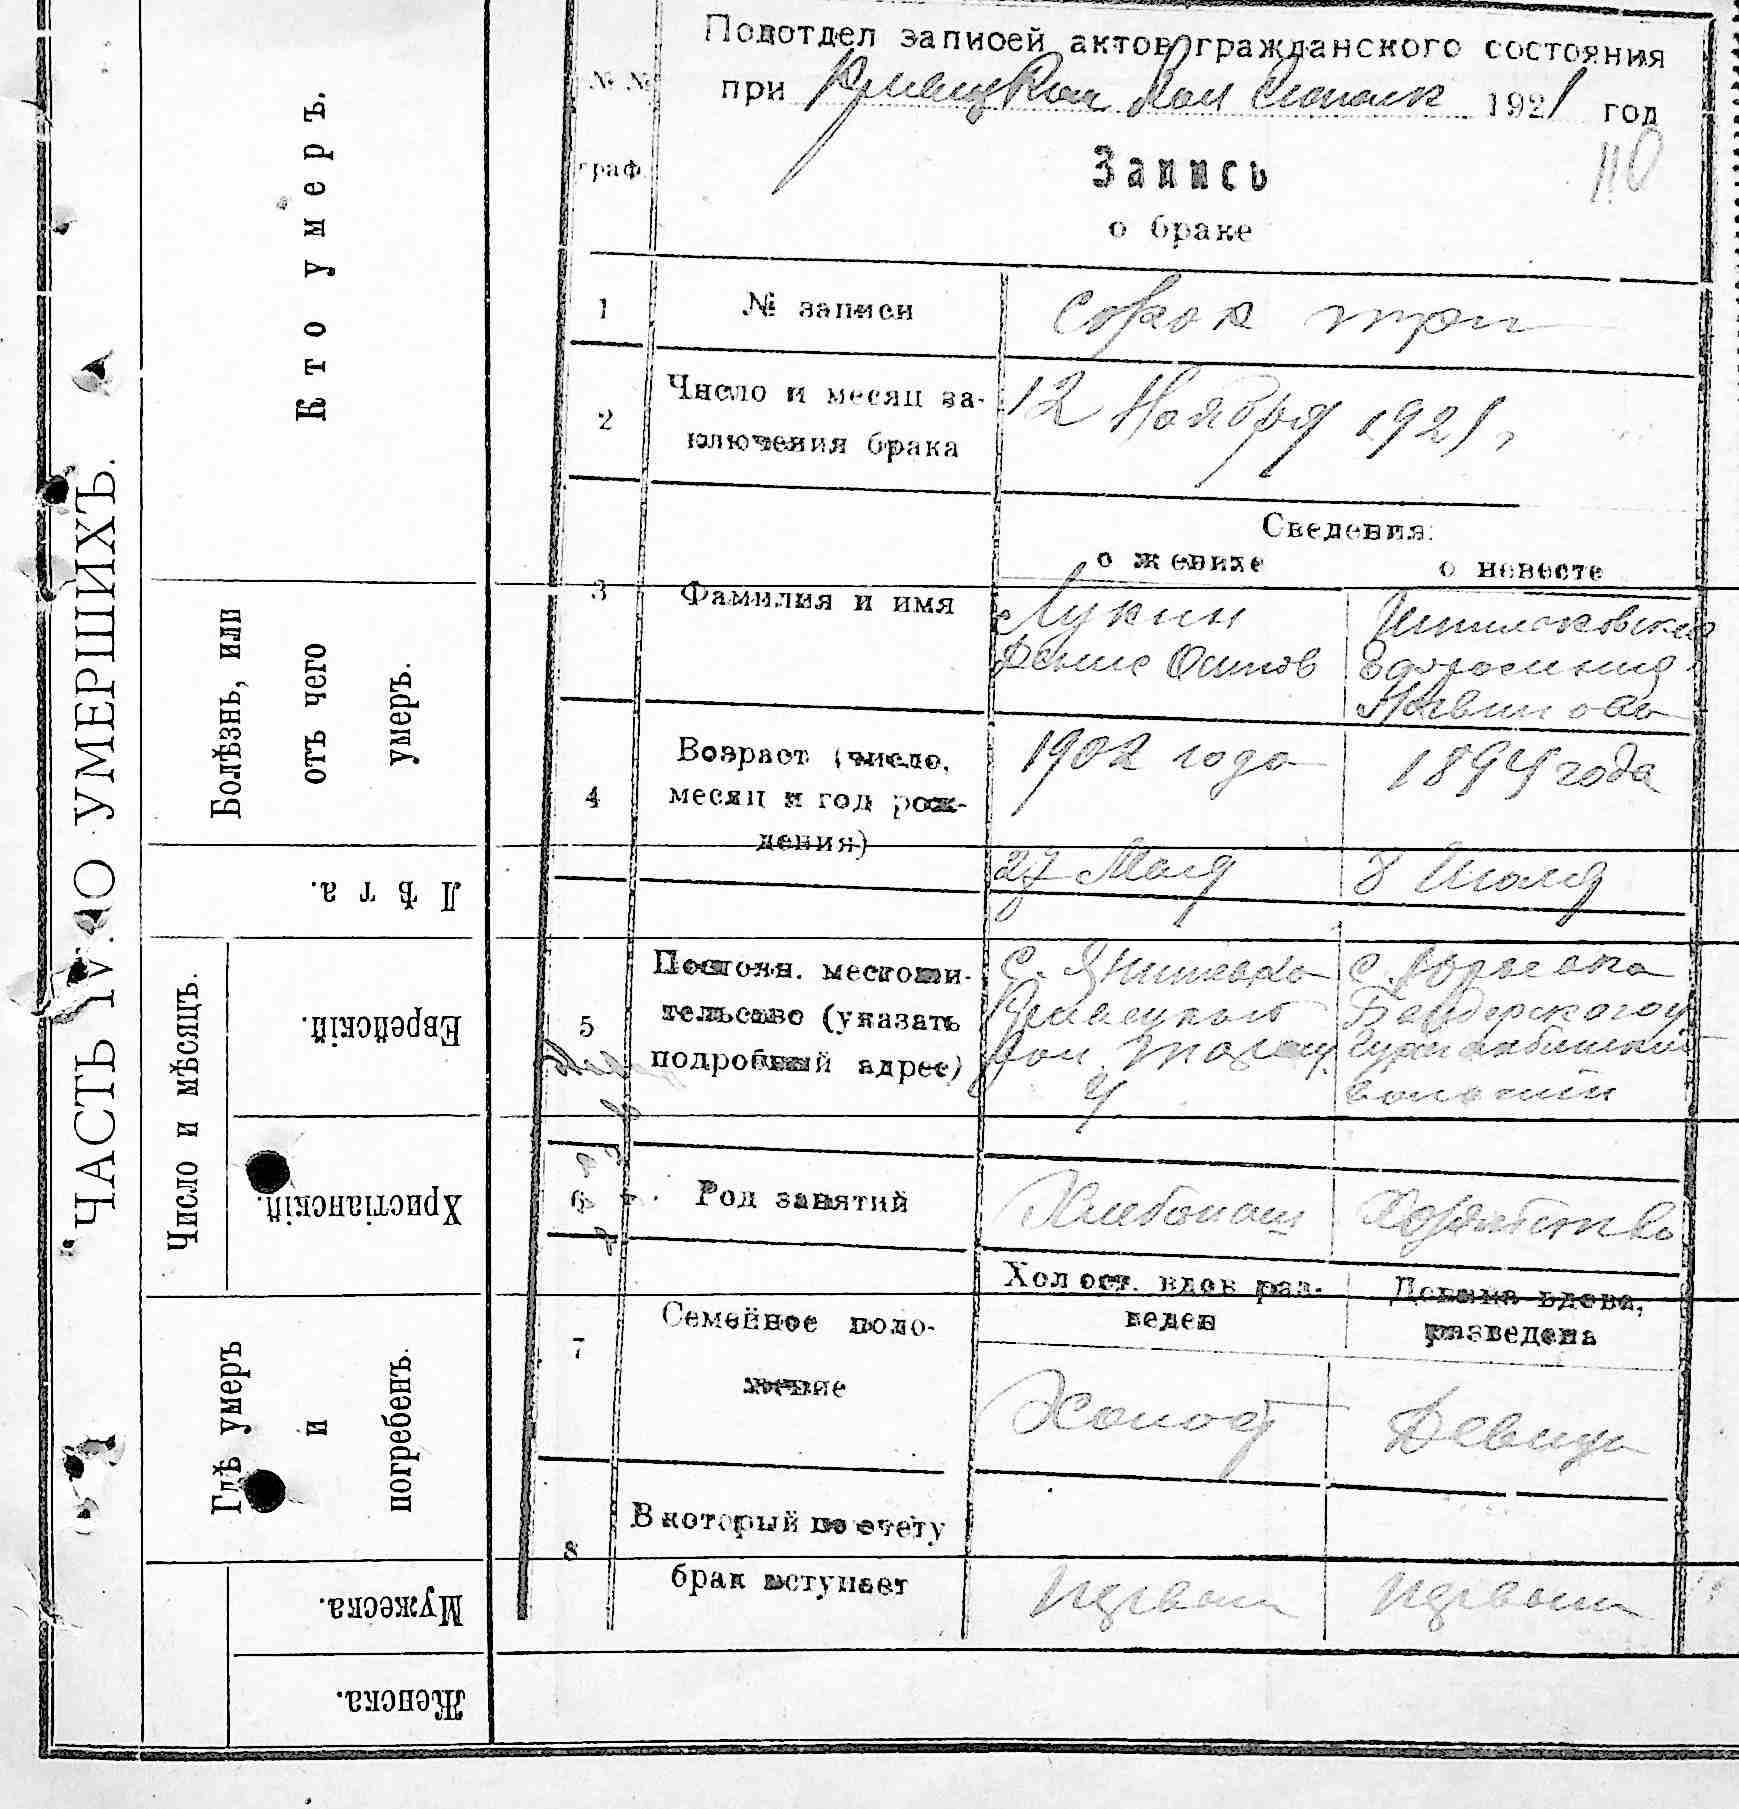 ЧАСТЬ IV. О УМЕРШИХЪ.
Кто умеръ.
Болѣзнь, или
отъ чего
умеръ.
Лѣта.
Число и мѣсяцъ.
Еврейскій.
Христіанскій.
Гдѣ умеръ
и
погребенъ.
Мужеска.
Женска.
№ №
граф.
Подотдел записей актов гражданского состояния
при 1921 год
110
Запись
о браке
1 № записи сорок три
2 Число и месяц за-
ключения брака
12 Ноября 1921 г
Сведения:
о женихе о невесте
3 Фамилия и имя
Лукин
Денис Осипов
4 Возраст (число,
месяц и год рож-
дения)
1902 года
27 Мая
1894 года
8 Июля
5 Постоян. местожи-
тельсво (указать
подробный адрес)
с.
вол.
у.
с.
Бендерского у
волости
6 Род занятий Хлебопаш
7 Семейное поло-
жение
Холост. вдов раз-
веден
Девица вдова,
разведена
Холост Девица
8 В который по счету
брак вступает
первый первый